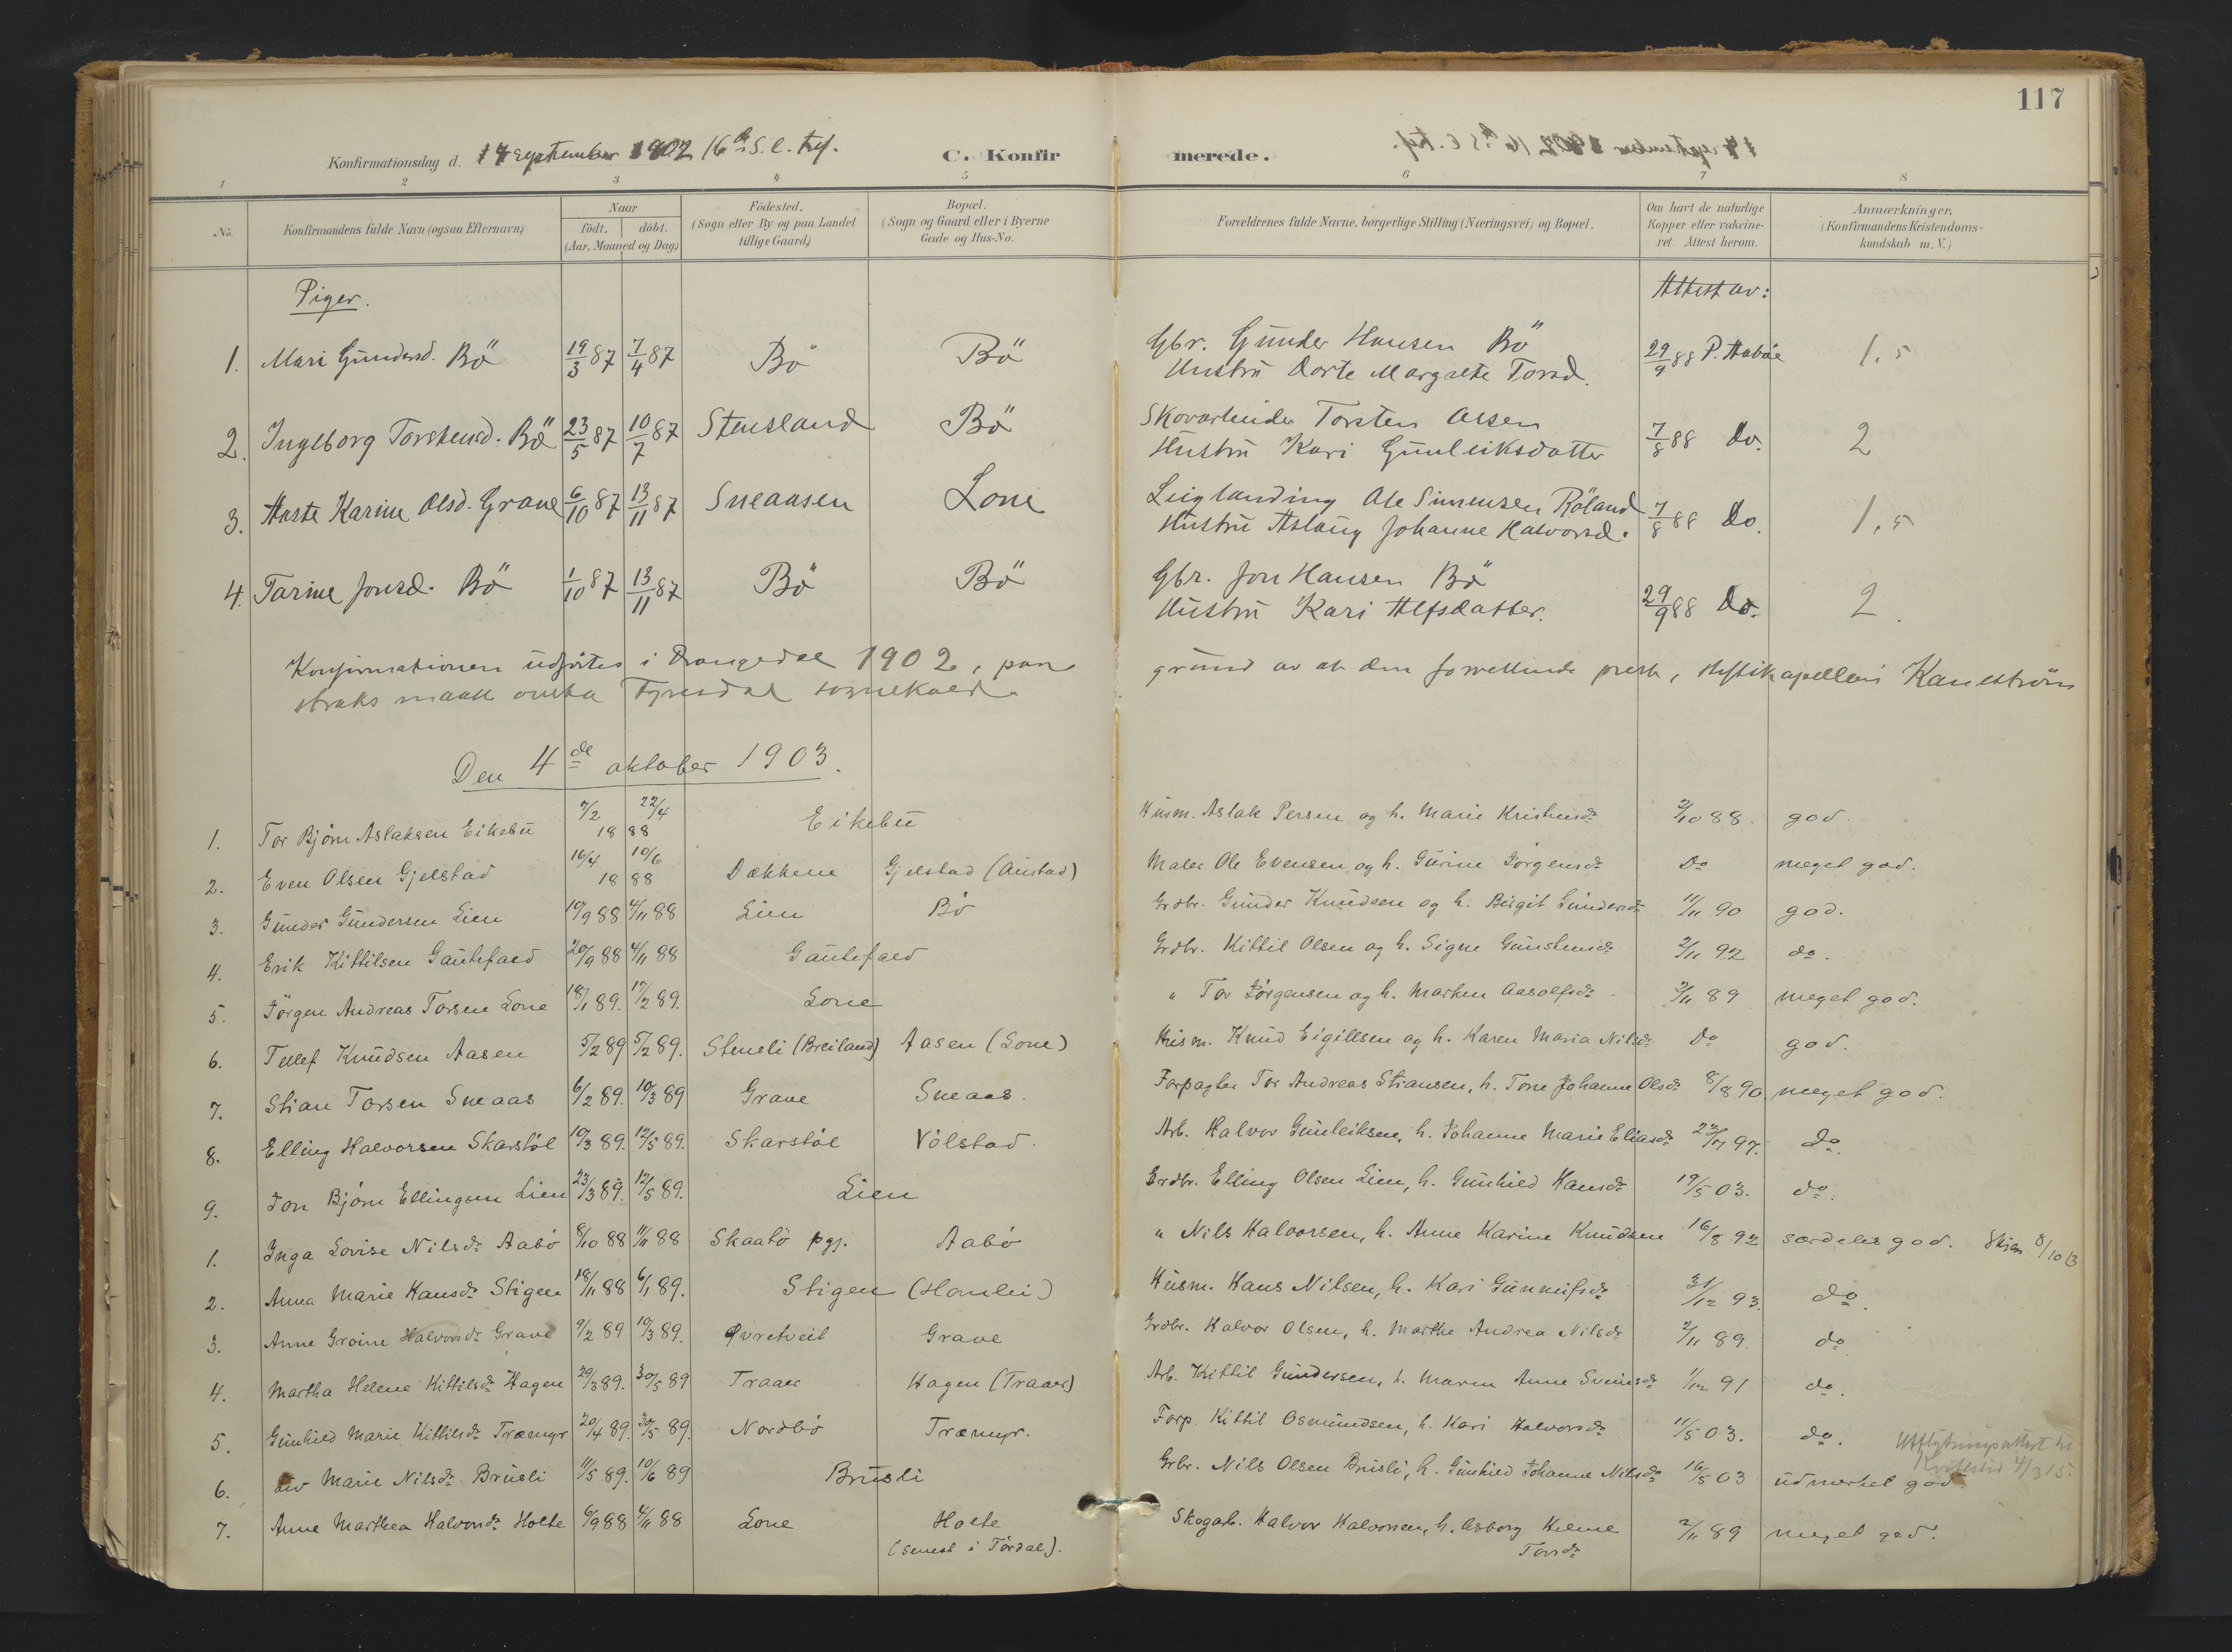 117
Konfirmationsdag d. 14 September 1902 16de S. e. tref. C. Konfirmerede.
1 2 3 4 5 6 7 8
No. Konfirmandens fulde Navn (ogsaa Efternavn) Naar født. døbt. (Aar, Maaned og Dag) Fødested. (Sogn eller By og paa Landet tillige Gaard) Bopæl. (Sogn og Gaard eller i Byerne Gade og Hus-No. Forældrenes fulde Navne, borgerlige Stilling (Næringsvei) og Bopæl. Om havt de naturlige Kopper eller vakcineret Attest herom. Anmærkninger. (Konfirmandens Kristendomskundskab m. V.)
Piger. Attest av:
1. Mari Gundersd. Bö 19/3 87 7/4 87 Bö Bö Gbr. Gunder Hansen Bö 29/9 88 P. Aabøe 1,5
Hustru Dorte Margrete Torsd.
2. Ingeborg Torstensd. Bö 23/5 87 10/7 87 Stensland Bö Skovarbeider Torsten Olsen 7/8 88 Do. 2
Hustru Kari Gunleiksdatter
3. Aaste Karine Olsd. Grave 6/10 87 13/11 87 Sneaasen Lone Leiglænding Ole Simensen Röland 7/8 88 Do. 1,5
Hustru Aslaug Johanne Halvorsd.
4. Tarine Jonsd. Bö 1/10 87 13/11 87 Bö Bö Gbr. Jon Hansen Bö 29/9 88 Do. 2
Hustru Kari Alfsdatter.
Konfirmationen udførtes i Drangedal 1902, paa grund av at den forrettende prest, stiftskapellan Kaneström
straks maatte overta Tyrisdal sognekald.
Den 4de oktober 1903.
1. Tor Bjørn Aslaksen Eikebu 7/2 22/4 1888 Eikebu Husm. Aslak Persen og h. Marie Kristensdr 2/10 88 god.
2. Even Olsen Gjelstad 16/4 10/6 1888 Dekkene Gjelstad (Austad) Maler Ole Evensen og h. Gurine Jørgensdr Do meget god.
3. Gunder Gundersen Lien 19/9 88 4/11 88 Lien Bö Grdbr. Gunder Knudsen og h. Birgit Gundersdr 11/11 90 god.
4. Erik Kittilsen Gautefald 20/9 88 4/11 88 Gautefald Grdbr. Kittil Olsen og h. Signe Gunstensdr 2/11 92 do.
5. Jörgen Andreas Torsen Lone 18/1 89. 17/2 89. Lone " Tor Jörgensen og h. Marthen Aasolfsdr 2/11 89 meget god.
6. Tellef Knudsen Aasen 5/2 89 5/2 89. Stensli (Breiland) Aasen (Lone) Husm. Knud Eigillsen og h. Karen Maria Nilsdr Do god.
7. Stian Torsen Sneaas 6/2 89. 10/3 89 Grave Sneaas. Forpagter Tor Andreas Stiansen, h. Tone Johanne Olsdr 8/8 90 meget god.
8. Elling Halvorsen Skarstøl 10/3 89. 12/5 89. Skarstøl Vølstad. Arb. Halvor Gunleiksen, h. Johanne Marie Eliasdr 97. do.
9. Jon Bjørn Ellingsen Lien 23/3 89. 12/5 89. Lien Grdbr. Elling Olsen Lien, h. Gunhild Hansdr 19/5 03. do.
1. Inga Lovise Nilsdr Aabø 8/10 88 11/11 88 Skaatö pgj. Aabø " Nils Halvorsen, h. Anne Karine Knudsen 16/8 92 særdeles god. Skien 8/10 13
2. Anna Marie Hansdr Stigen 18/11 88 6/1 89. Stigen (Homlei) Husm. Hans Nilsen, h. Kari Gunnulfsdr 31/12 93. do.
3. Anne Groine Halvorsdr Grave 9/2 89 10/3 89. Øvretveit Grave Grdbr. Halvor Olsen, h. Marthe Andrea Nilsdr 2/11 89. do
4. Martha Helene Kittilsdr Hagen 29/3 89. 30/5 89 Traaer Hagen (Traaer) Arb. Kittil Gundersen, h. Maren Anne Sveinsdr 1/12 91 do.
5. Gunhild Marie Kittilsdr Træmyr 20/4 89. 30/5 89. Nordbø Træmyr. Forp. Kittil Osmundsen, h. Kari Halvorsdr 11/5 03. do. Utflytningsattest til
6. Liv Marie Nilsdr Brusli 11/5 89. 10/6 89 Brusli Grbr. Nils Olsen Brusli, h. Gunhild Johanne Nilsdr 16/5 03 udmerket god. Kviteseid 4/3 15.
7. Anne Marthea Halvorsdr Holte 6/9 88 4/11 88 Lone Holte Skogarb. Halvor Halvorsen, h. Asborg Helene 2/11 89 meget god.
(senest i Tørdal). Torsdr